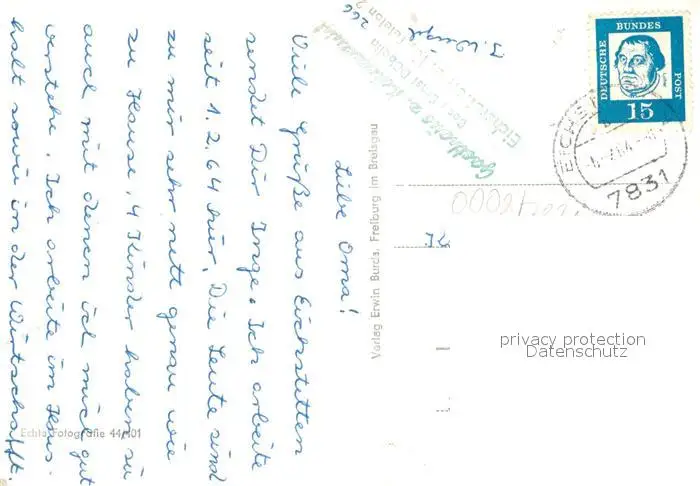 Liebe Oma!
Viele Grüße aus Eichstetten
sendet Dir Inge. Ich arbeite
seit 1.2.64 hier. Die Leute sind
zu mir sehr nett genau wie
zu Hause. 4 Kinder haben sie
auch mit denen ich mich gut
verstehe. Ich arbeite im Haus-
halt sowie in der Wirtschaft.
Echte Fotografie 44/401
Verlag Erwin Burda, Freiburg im Breisgau
266
DEUTSCHE BUNDES POST
15
7831
privacy protection
Datenschutz